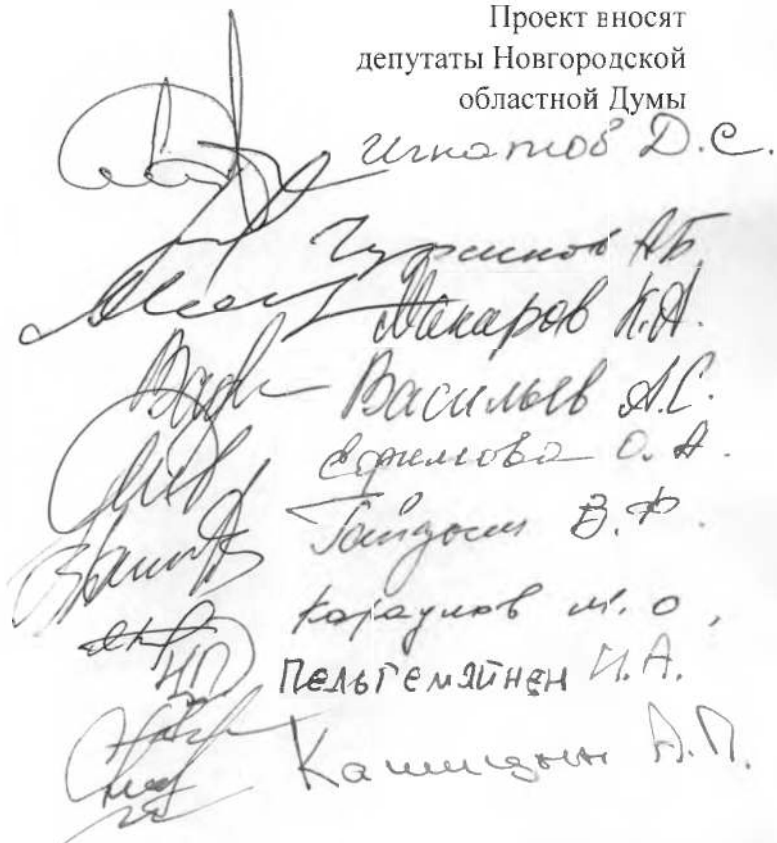 Проект вносят
депутаты Новгородской
областной Думы
Игнатов Д.С.
А.Б.
Макаров К.А.
Васильев А.С.
Ефимова О. А.
Гайдым В.Ф.
Караулов М.О.
НП Пельгемяйнен И.А.
А.П.